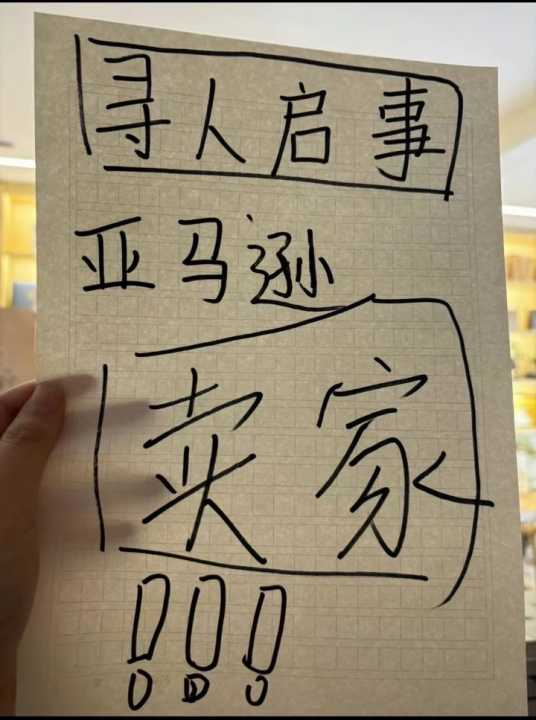 寻人启事
亚马逊
卖家
!!!